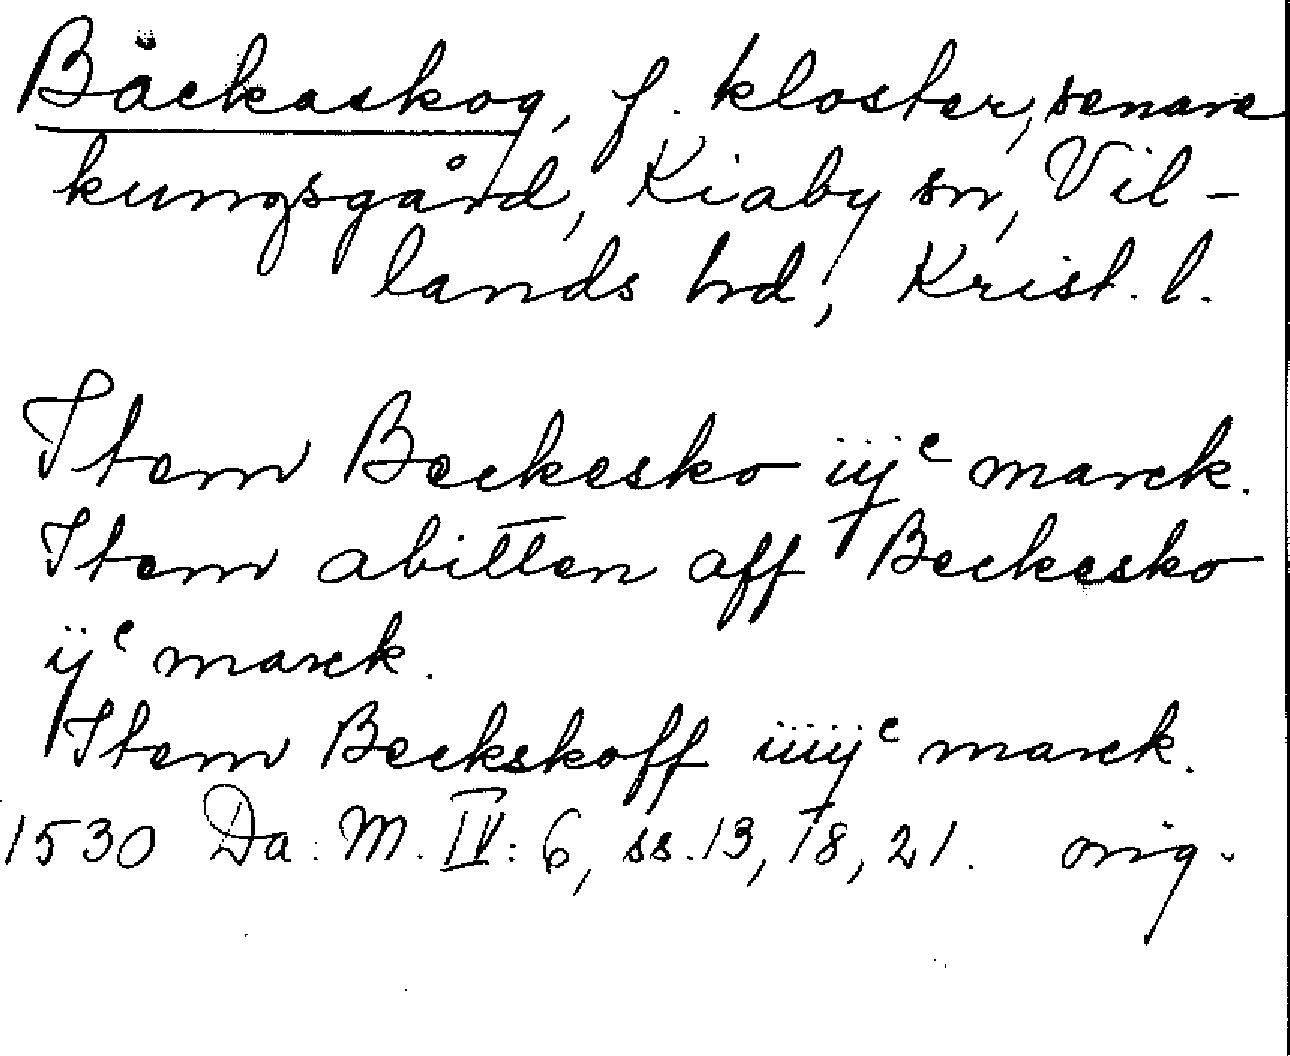 Bäckaskog, f. kloster, senare
kungsgård, Kiaby sn, Vil-
lands hd, Krist. l.
Item Beckesko iijᶜ marck.
Item abitten aff Beckesko
ijᶜ marck.
Item Beckskoff iiijᶜ marck.
1530 Da. M. IV: 6, ss. 13, 18, 21. orig.